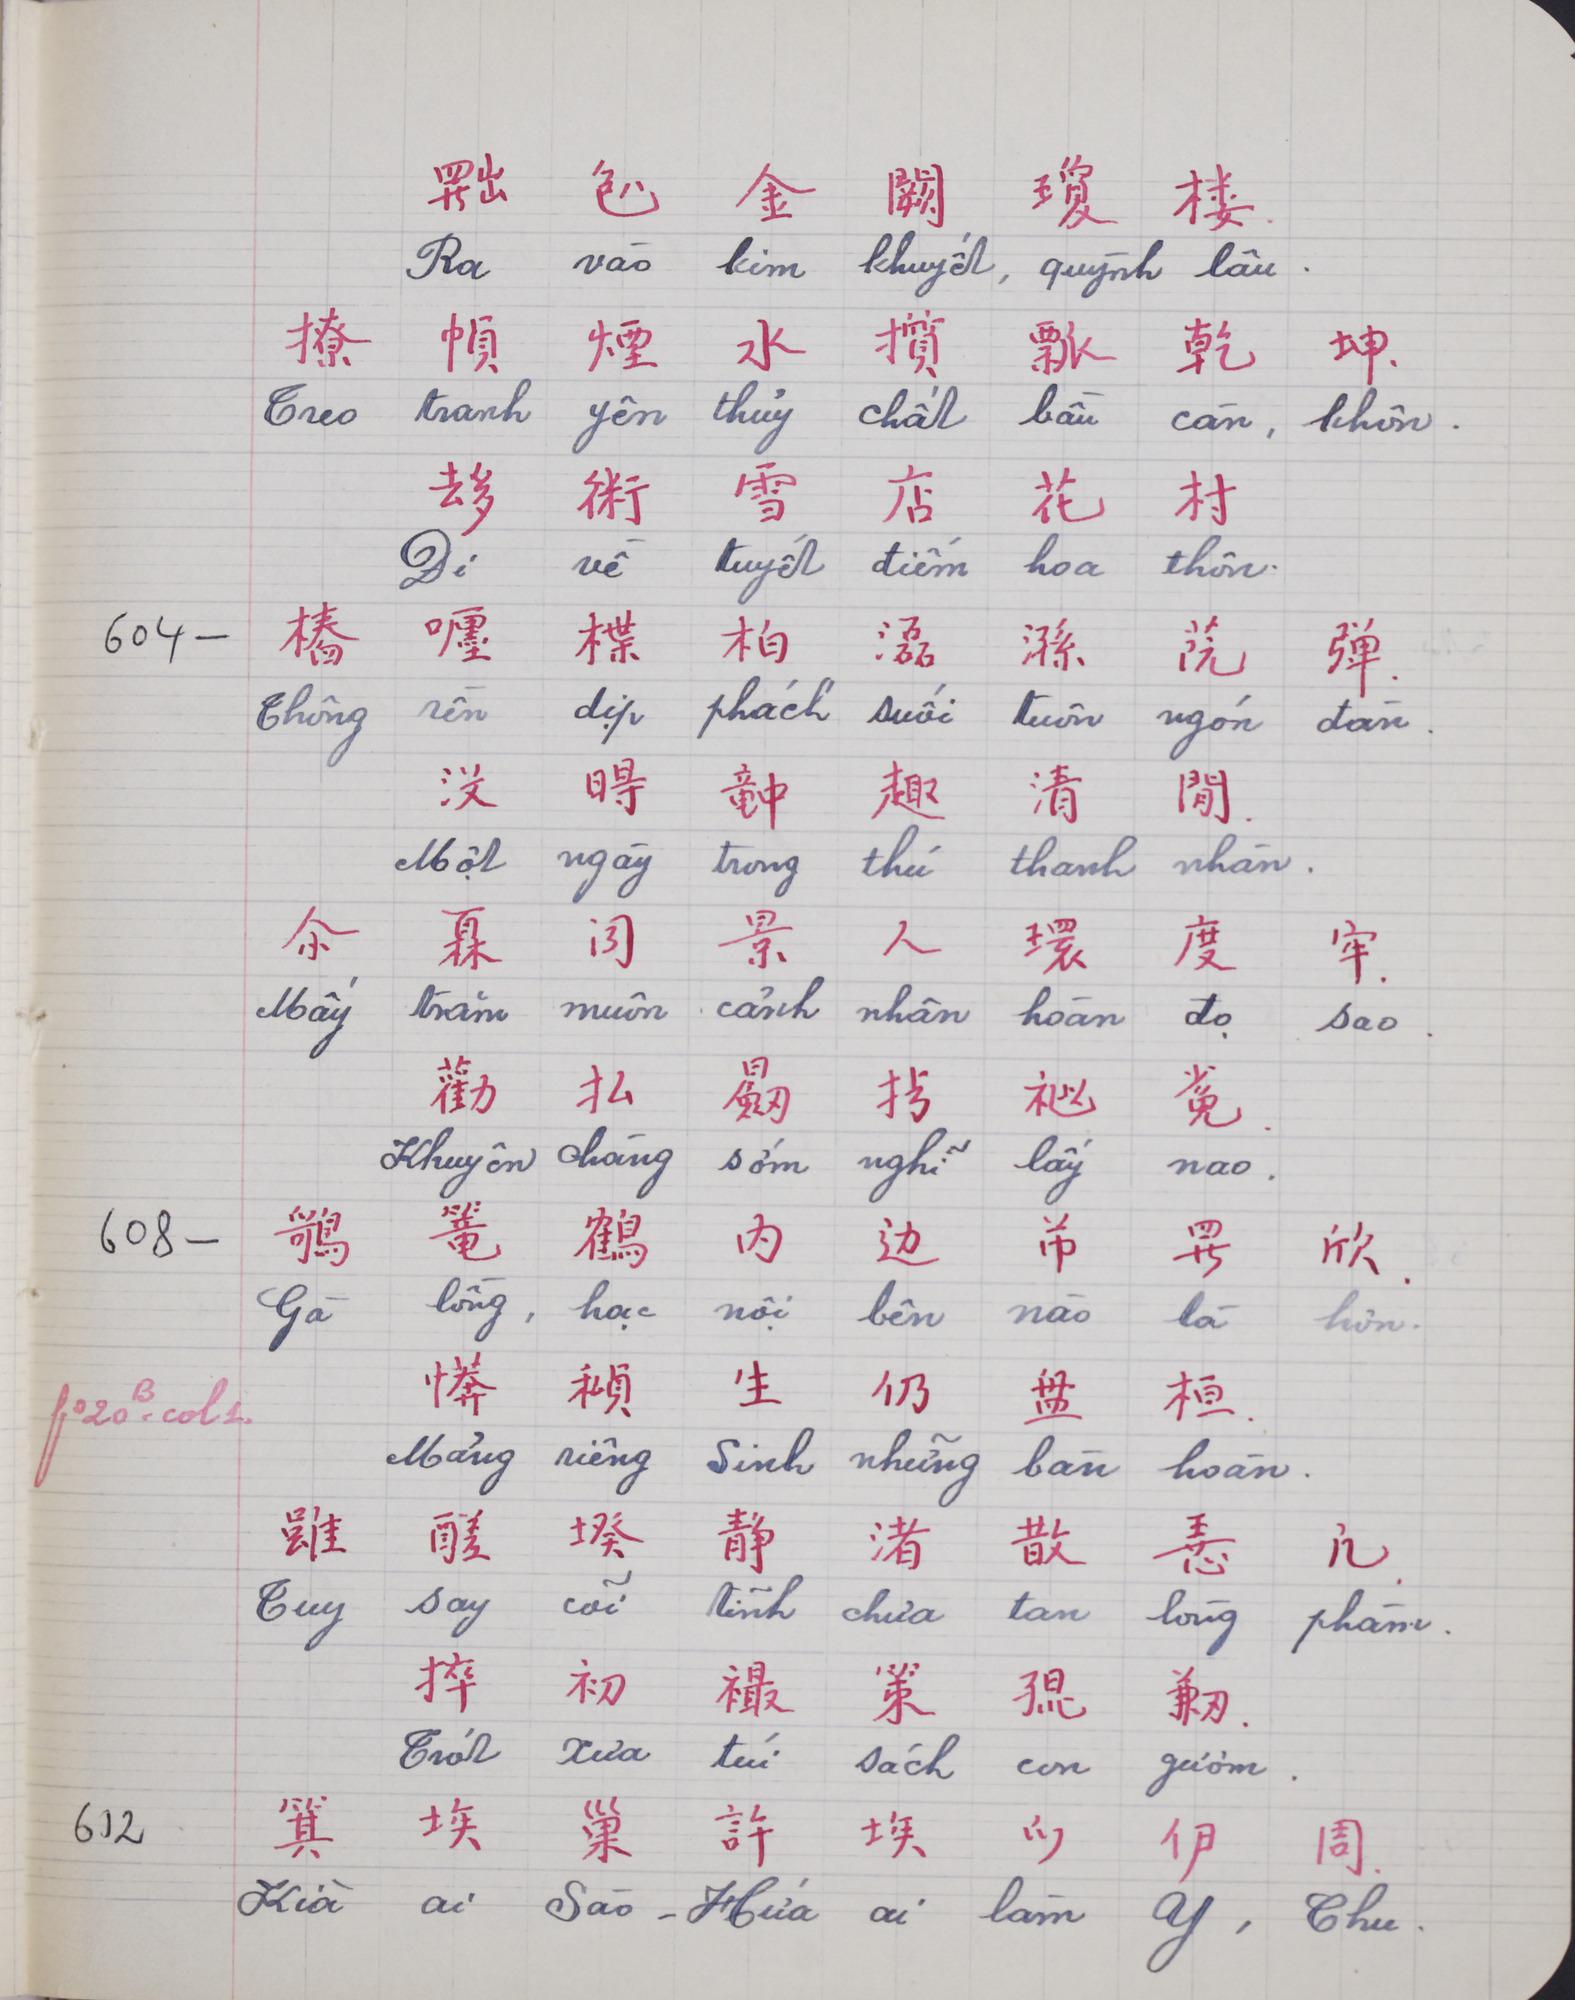 𫥨 㐌 金 闕 瓊 楼.
Ra vào kim khuyết, quỳnh lâu.
撩 幀 煙 水 攢 瓢 乾 坤.
Treo tranh yên thủy chất bầu càn, khôn.
𪠞 術 雪 店 花 村
Đi về tuyết điếm hoa thôn.
604 — 樁 㗚 楪 柏 𤂬 㵋 𦬻 弹.
Thông rền dịp phách suối tuôn ngón đàn.
没 𣈗 𥪝 趣 清 閒.
Một ngày trong thú thanh nhàn.
余 𤾓 闁 景 人 環 度 牢.
Mấy trăm muôn cảnh nhân hoàn đọ sao.
勸 払 𣌋 𢪀 𥙩 𱜢.
Khuyên chàng sớm nghĩ lấy nao.
608 — 𪃿 篭 鶴 内 边 芇 𱺵 欣.
Gà lồng, hạc nội bên nào là hơn.
fº 20 B. col 1.
𢠨 𥢆 生 仍 盤 桓.
Mảng riêng Sinh những bàn hoàn.
雖 醝 𡎝 静 渚 散 𢚸 凡.
Tuy say cõi tĩnh chưa tan lòng phàm.
捽 初 襊 策 𡥵 𠞹.
Trót xưa túi sách con gươm.
612 箕 埃 巢 許 埃 𫜵 伊 周.
Kìa ai Sào - Hứa ai làm Y, Chu.